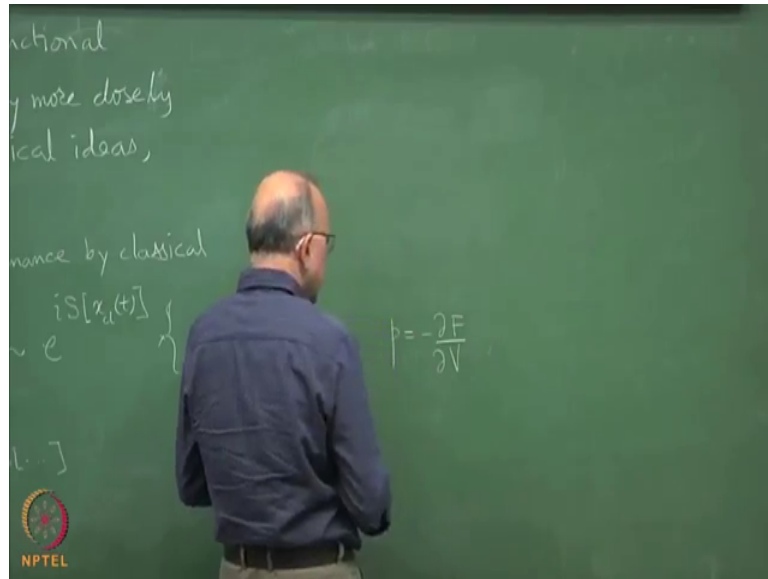 nctional
y more closely
ical ideas,
nance by classical
~ e^{iS[x_{cl}(t)]} {
p = -∂F/∂V
...]
NPTEL